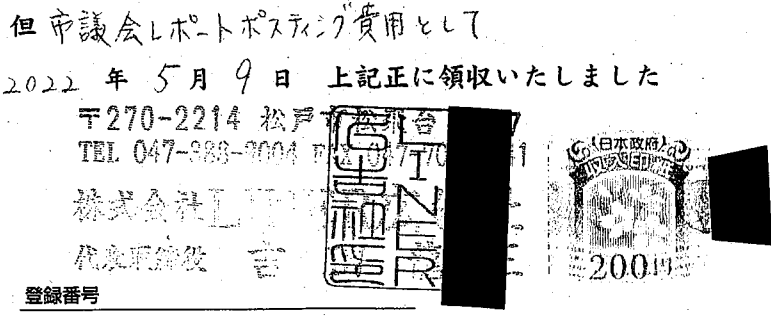 但 市議会レポートポスティング費用として
2022 年 5 月 9 日 上記正に領収いたしました
〒270-2214 松戸
TEL 047-388-
株式会社LINER
代表取締役 吉
日本政府
収入印紙
200円
登録番号